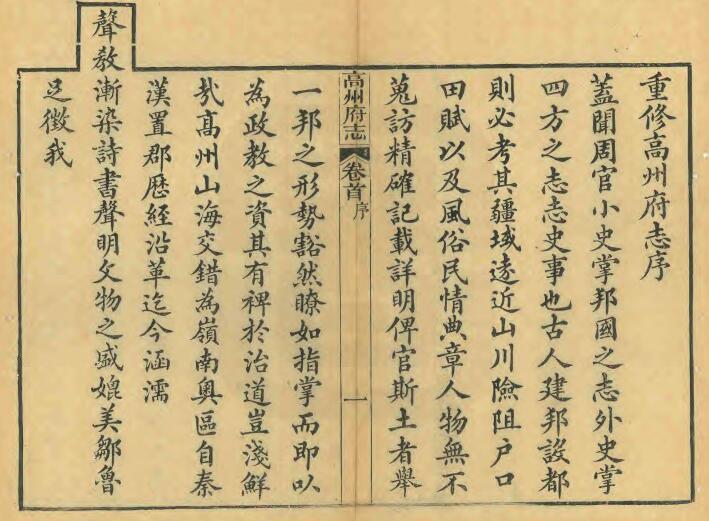 重修高州府志序
蓋聞周官小史掌邦國之志外史掌
四方之志志史事也古人建邦設都
則必考其疆域遠近山川險阻戶口
田賦以及風俗民情典章人物無不
蒐訪精確記載詳明俾官斯土者舉
高州府志 卷首 序 一
一邦之形勢豁然瞭如指掌而即以
為政教之資其有裨於治道豈淺鮮
㢤高州山海交錯為嶺南奧區自秦
漢置郡歷經沿革迄今涵濡
聲教漸染詩書聲明文物之盛媲美鄒魯
足徵我